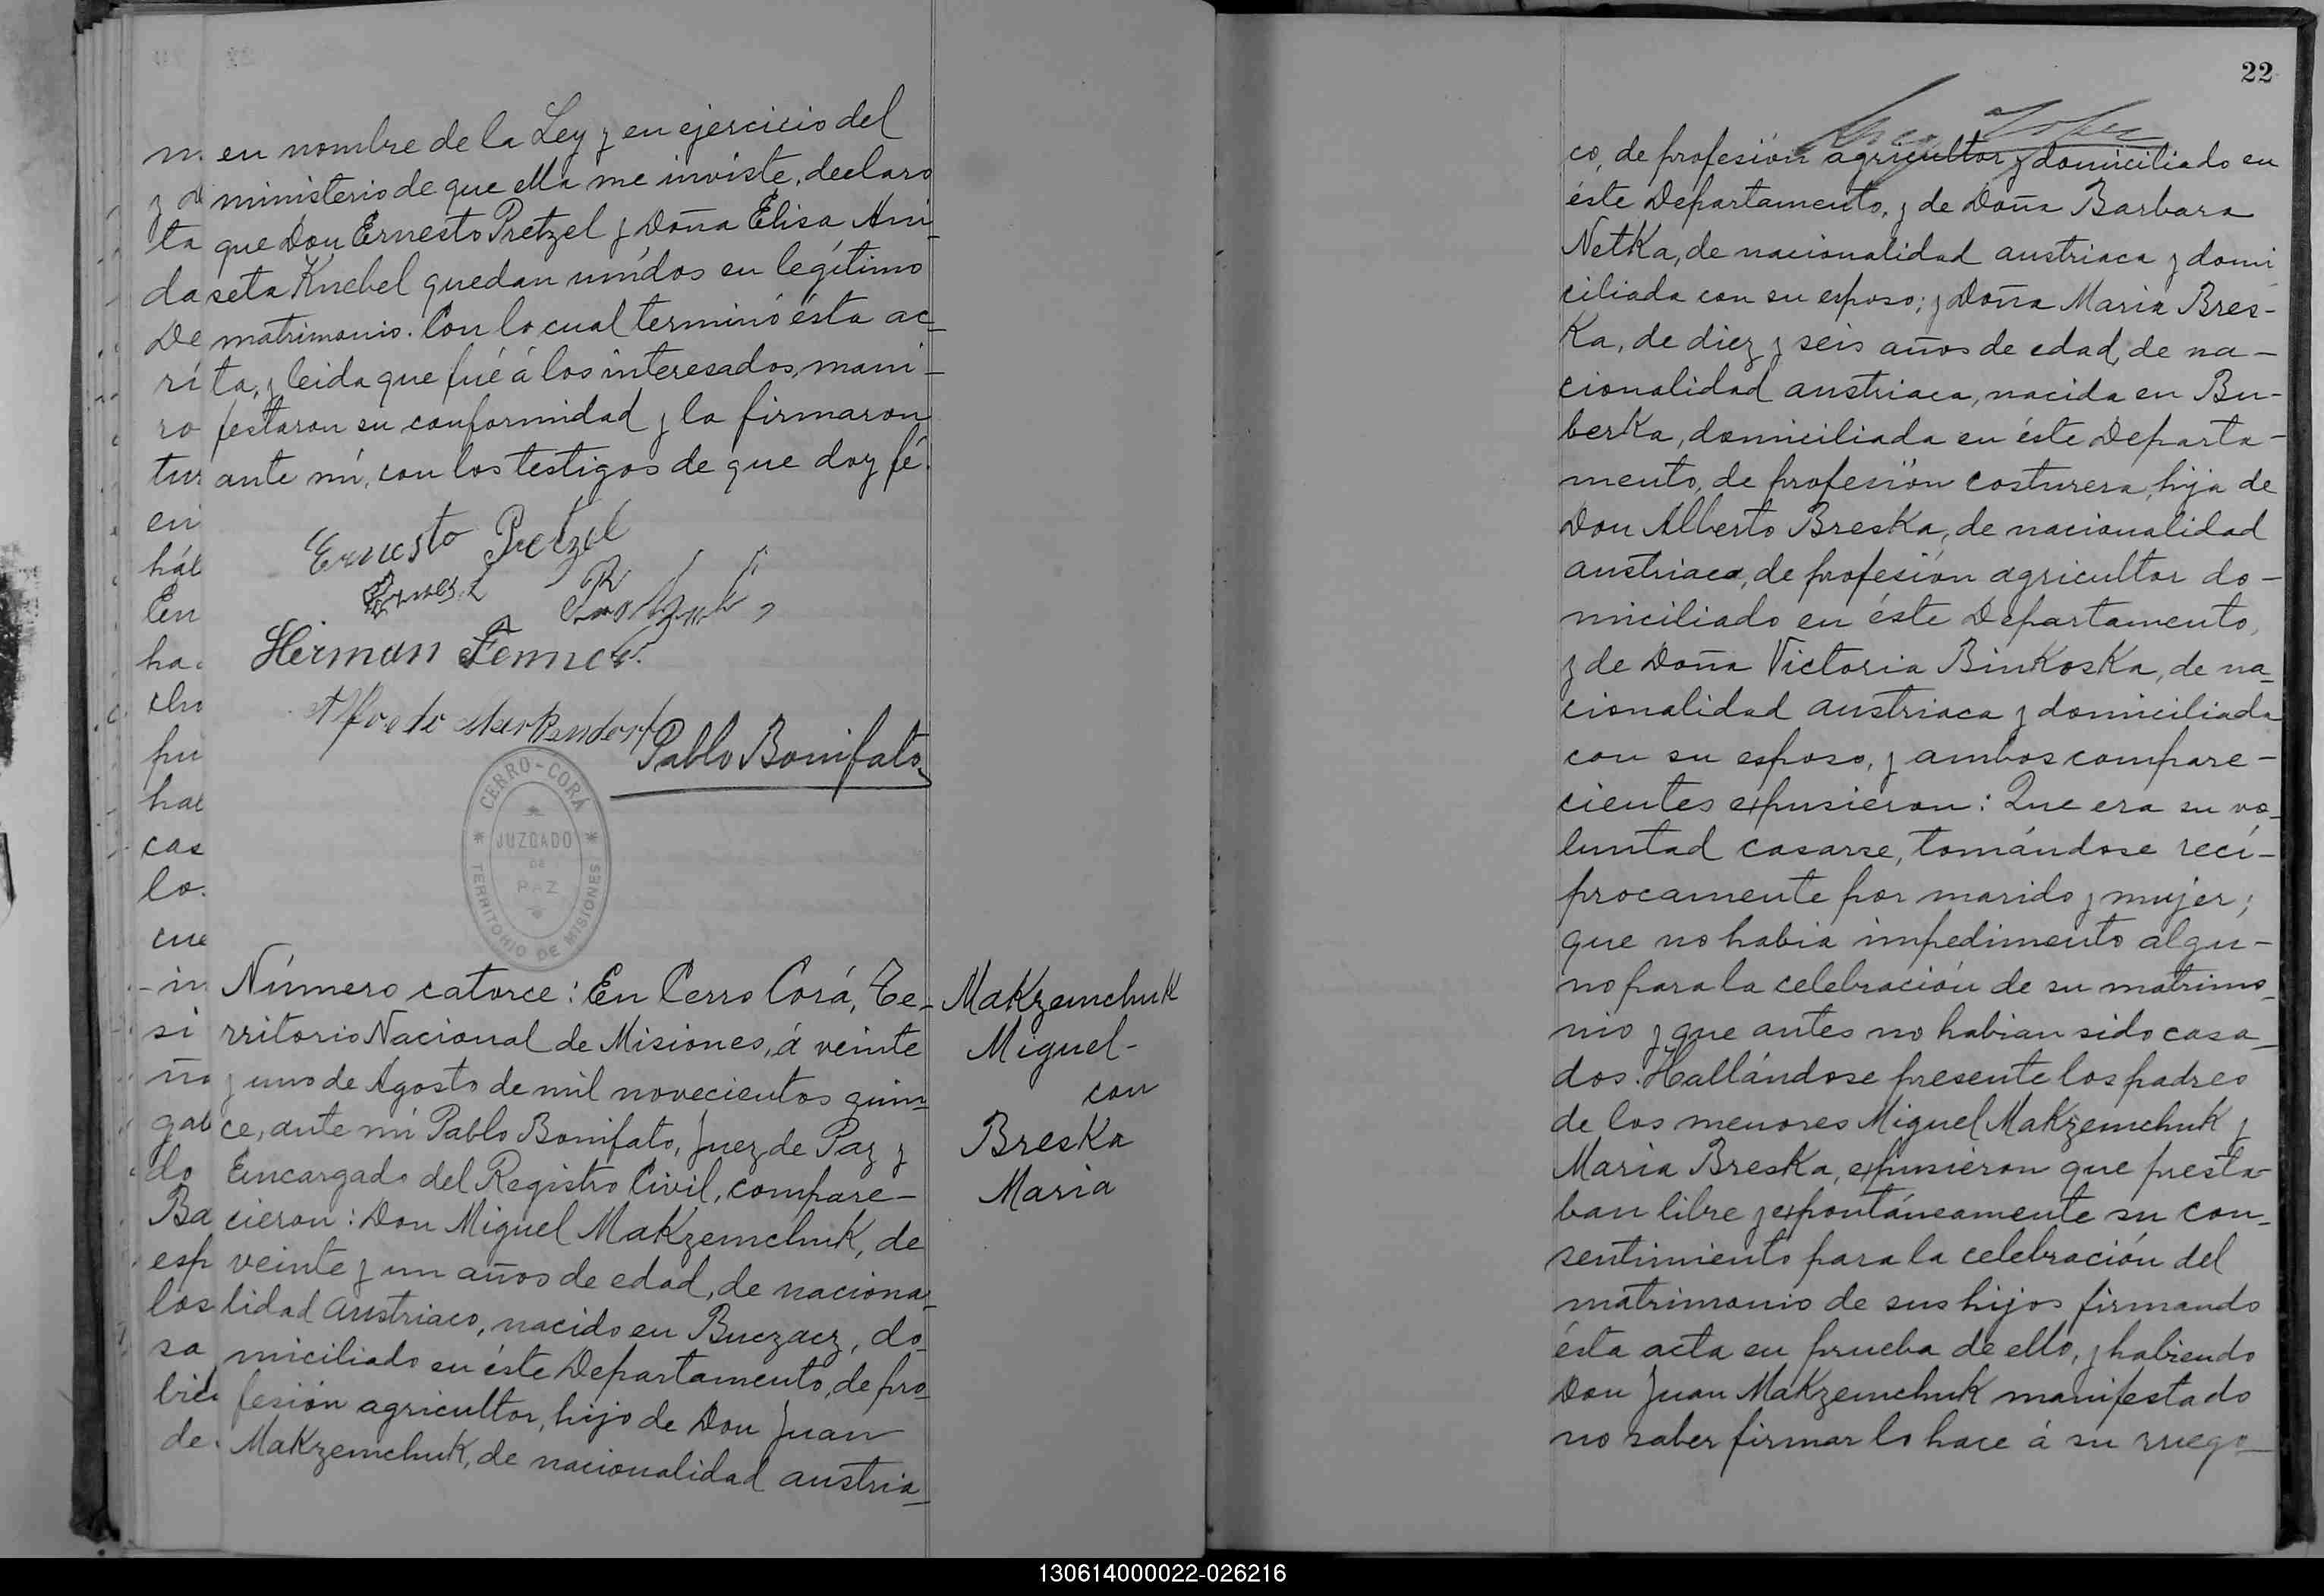 en nombre de la Ley y en ejercicio del
ministerio de que ella me inviste, declaro
que Don Ernesto Pretzel y Doña Elisa Ani-
seta Knebel quedan unídos en legítimo
matrimonio. Con lo cual terminó ésta ac-
ta, y leida que fué á los interesados, mani-
festaron su conformidad y la firmaron
ante mí, con los testigos de que doy fé.
Ernesto Pretzel
Herman
Pablo Bonifato
CERRO-CORÁ
JUZGADO
DE
PAZ
TERRITORIO DE MISIONES
Número catorce: En Cerro Corá, Te-
rritorio Nacional de Misiones, á veinte
y uno de Agosto de mil novecientos quin-
ce, ante mí Pablo Bonifato, Juez de Paz y
Encargado del Registro Civil, compare-
cieron: Don Miguel Makzemchuk, de
veinte y un años de edad, de naciona-
lidad austriaco, nacido en Buczacz, do-
miciliado en éste Departamento, de pro-
fesión agricultor, hijo de Don Juan
Makzemchuk, de nacionalidad austria-
Makzemchuk
Miguel-
con
Breska
Maria
22
co, de profesión agricultor y domiciliado en
éste Departamento, y de Doña Barbara
Netka, de nacionalidad austriaca y domi
ciliada con su esposo; y Doña Maria Bres-
ka, de diez y seis años de edad, de na-
cionalidad austriaca, nacida en Bu-
berka, domiciliada en éste Departa-
mento, de profesión costurera, hija de
Don Alberto Breska, de nacionalidad
austriaco, de profesión agricultor do-
miciliado en éste Departamento,
y de Doña Victoria Binkoska, de na-
cionalidad austriaca y domiciliada
con su esposo, y ambos compare-
cientes expusieron: Que era su vo-
luntad casarse, tomándose recí-
procamente por marido y mujer;
que no habia impedimento algu-
no para la celebración de su matrimo-
nio y que antes no habian sido casa-
dos. Hallándose presente los padres
de los menores Miguel Makzemchuk y
Maria Breska, expusieron que presta-
ban libre y expontáneamente su con-
sentimiento para la celebración del
matrimonio de sus hijos firmando
ésta acta en prueba de ello, y habiendo
Don Juan Makzemchuk manifestado
no saber firmar lo hace á su ruego
130614000022-026216